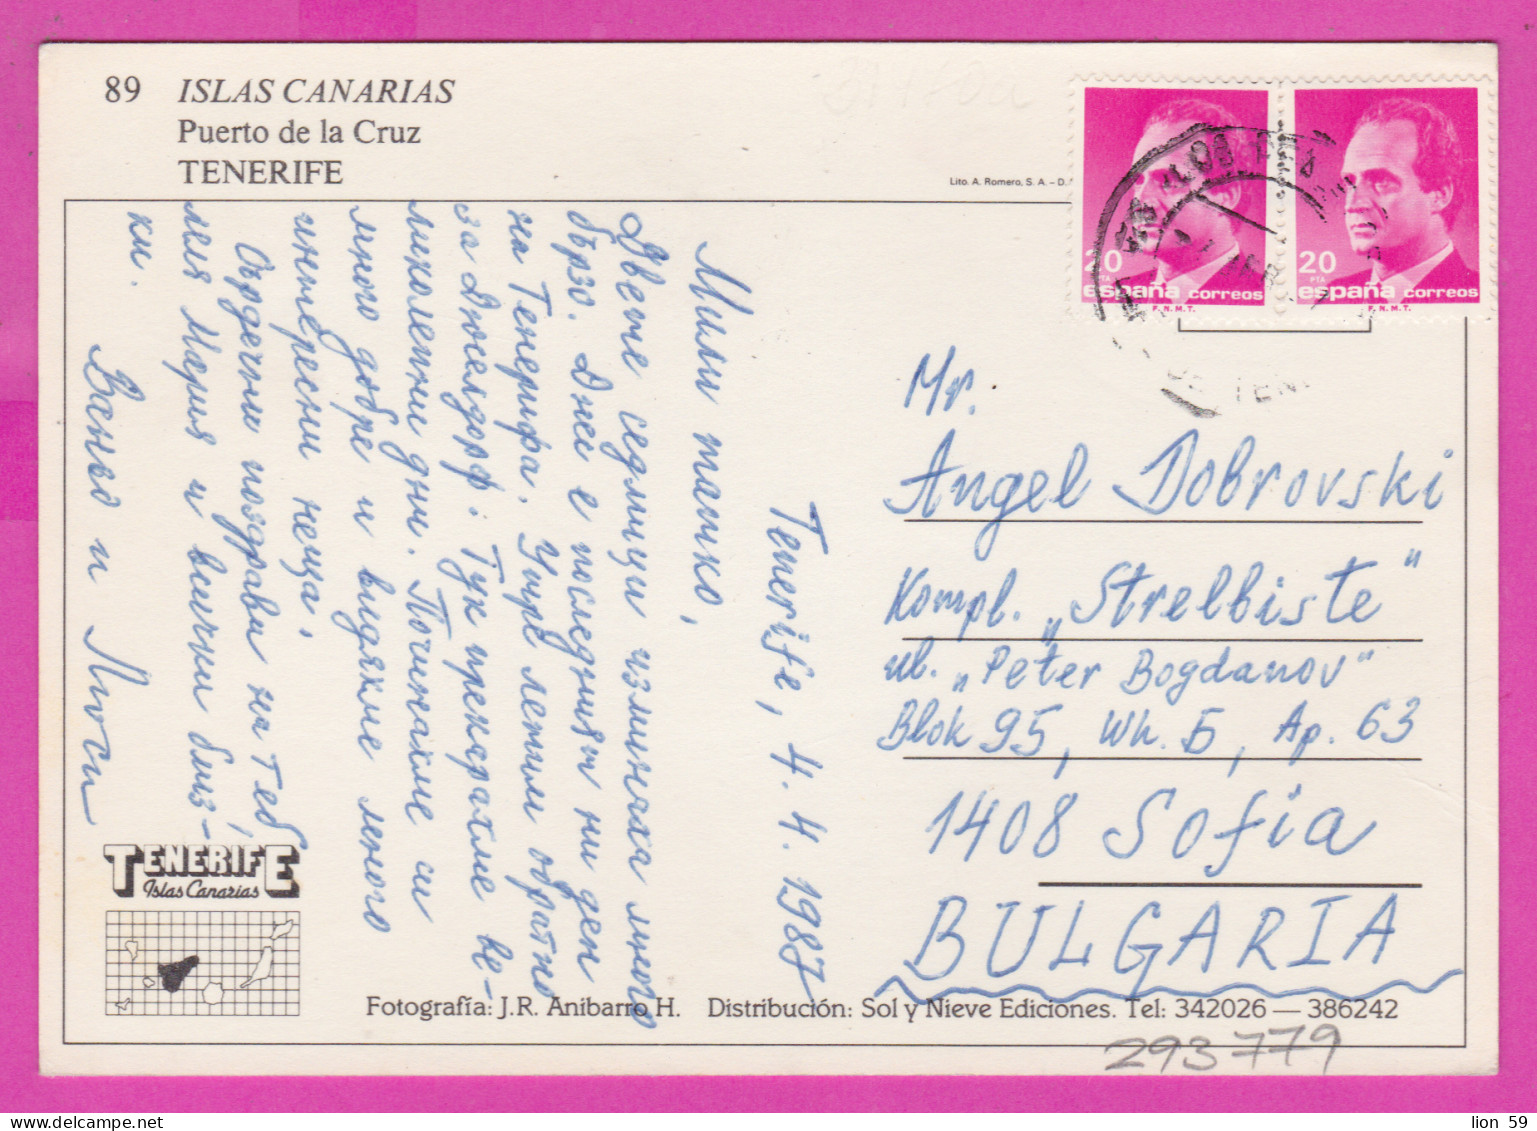 89 ISLAS CANARIAS
Puerto de la Cruz
TENERIFE
Lito. A. Romero, S. A. – D.
20
PTA
españa correos
F.N.M.T.
20
PTA
españa correos
F.N.M.T.
Tenerife, 4. 4. 1987
Мили татко,
Двете седмици изминаха много
бързо. Днес е последният ни ден
на Тенерифа. Утре летим обратно
за Дюселдорф. Тук прекарахме ве-
ликолепни дни. Починахме си
много добре и видяхме много
интересни неща.
Сърдечни поздрави на теб,
леля Мария и всички близ-
ки.
Ваньо и Люси
Mr.
Angel Dobrovski
Kompl. „Strelbište"
ul. „Peter Bogdanov"
Blok 95, Wh. Б, Ap. 63
1408 Sofia
BULGARIA
TENERIFE
Islas Canarias
Fotografía: J.R. Anibarro H. Distribución: Sol y Nieve Ediciones. Tel: 342026 — 386242
293779
lion 59